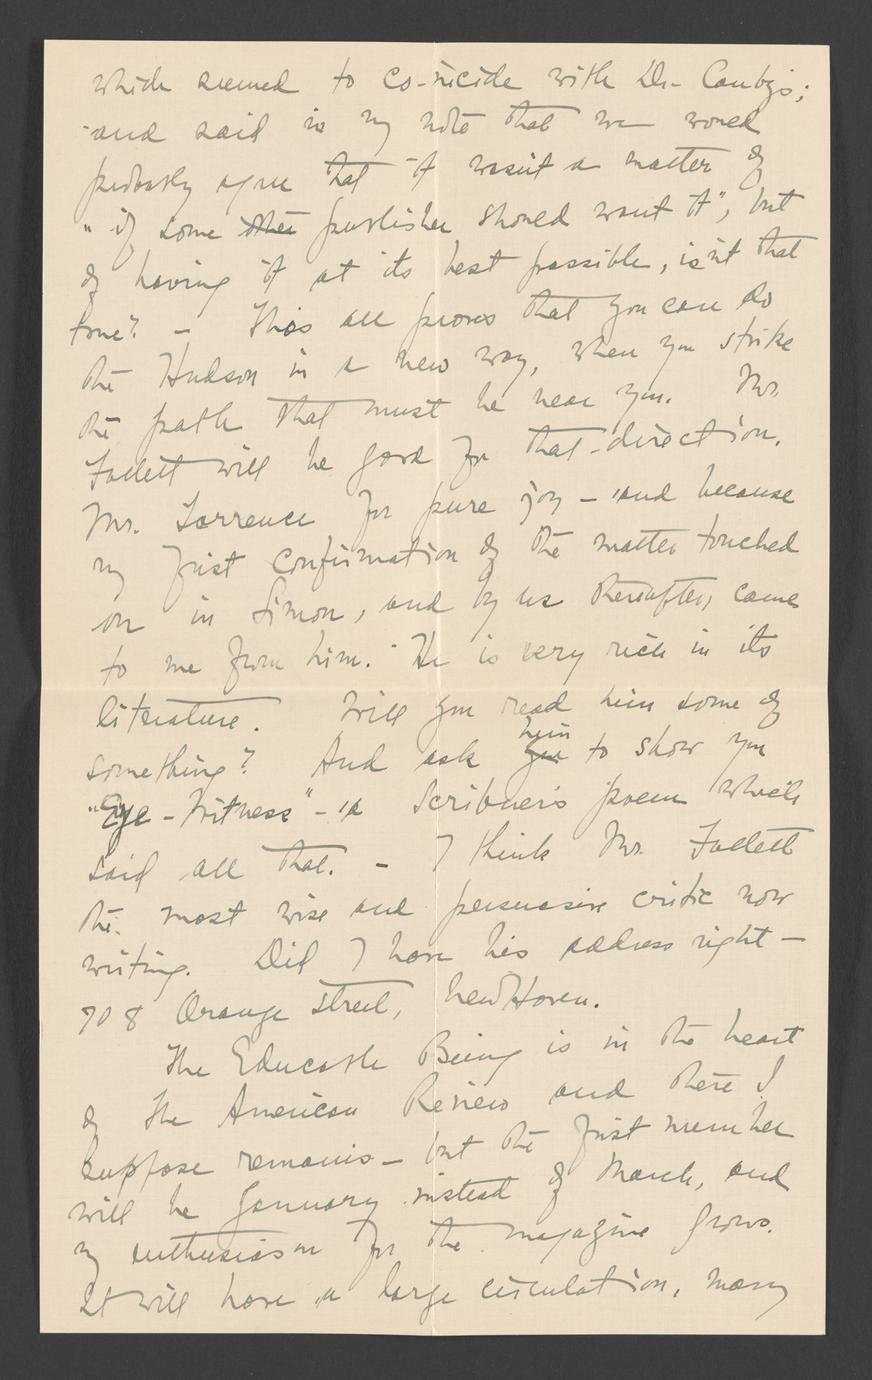 which seemed to co-incide with Dr. Canby's;
and said in my note that we would
probably agree that it wasn't a matter of
"if some other publisher should want it", but
of having it at its best possible, isn't that
true? – This all proves that you can do
the Hudson in a new way, when you strike
the path that must be near you. Mr.
Follett will be good for that direction.
Mr. Torrence for pure joy – and because
my first confirmation of the matter touched
on in Simon, and by us thereafter, came
to me from him. He is very rich in its
literature. Will you read him some of
something? And ask you him to show you
"Eye-Witness" – a Scribner's poem which
said all that. – I think Mr. Follett
the most wise and persuasive critic now
writing. Did I have his address right –
708 Orange Street, New Haven.
The Educable Being is in the heart
of The American Review and there I
suppose remains – but the first number
will be January instead of March, and
my enthusiasm for the magazine grows.
It will have a large circulation, many